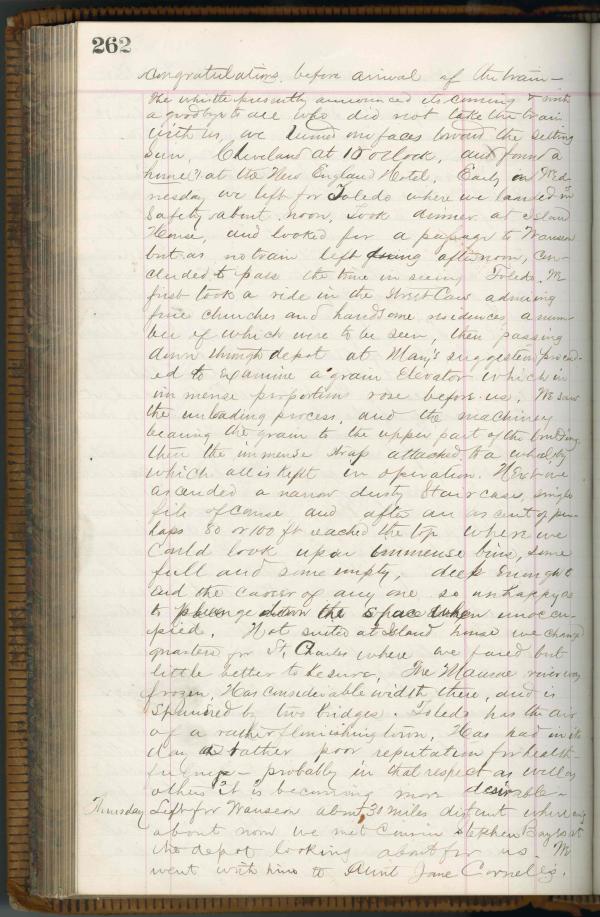 262
congratulations before arrival of the train—
The whistle presently announced its coming & with
a goodbye to all who did not take the train
with us, we turned our faces toward the setting
Sun, Cleveland at 10 oclock, and found a
home at the New England Hotel. Early on Wed
nesday we left for Toledo where we landed in
Safety about noon, took dinner at Island
House, and looked for a passage to Wauseon
but as no train left during afternoon, con
cluded to pass the time in seeing Toledo. We
first took a ride in the Street Cars admiring
fine churches and handsome residences a num
ber of which were to be seen, then passing
down through depot at Mary's suggestion proceed
ed to examine a grain Elevator which in
immense proportions rose before us. We saw
the unloading process, and the machinery
bearing the grain to the upper part of the building
then the immense strap attached to a wheel by
which all is kept in operation. Next we
ascended a narrow dusty Stair case, single
file of course and after an ascent of per
haps 80 or 100 ft reached the top where we
could look upon immense bins, some
full and some empty, deep enough to
end the career of any one so unhappy as
to plunge down the space when unoccu
pied. Not suited at Island house we changed
quarters for St. Charles where we fared but
little better to be sure. The Maumee river was
frozen, Has considerable width there, and is
Spanned by two bridges. Toledo has the air
of a rather flourishing town. Has had in its
day a rather poor reputation for health-
fulness— probably in that respect as well as
others it is becoming more desirable—
Thursday Left for Wauseon about 30 miles distant where
about noon we met Cousin Stephen at
the depot looking about for us. We
went with him to Aunt Jane Cornell's.